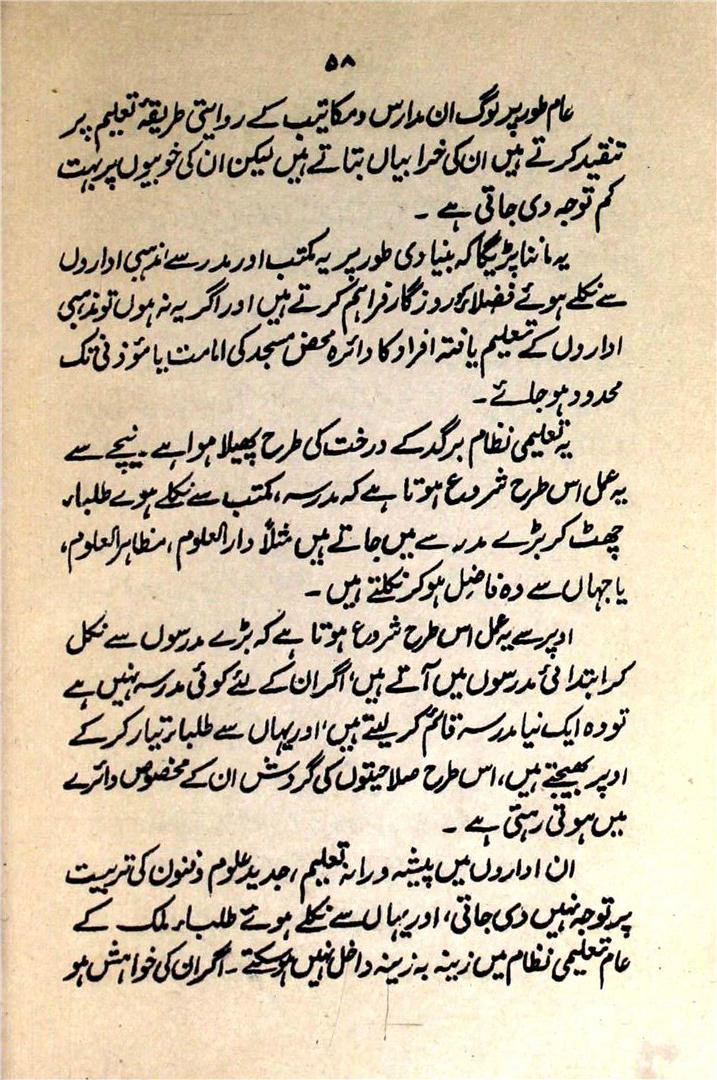 ۵۸
عام طور پر لوگ ان مدارس و مکاتیب کے روایتی طریقۂ تعلیم پر
تنقید کرتے ہیں ان کی خرابیاں بتاتے ہیں لیکن ان کی خوبیوں پر بہت
کم توجہ دی جاتی ہے ۔
یہ ماننا پڑیگا کہ بنیادی طور پر یہ مکتب اور مدرسے مذہبی اداروں
سے نکلے ہوئے فضلاء کو روزگار فراہم کرتے ہیں اور اگر یہ نہ ہوں تو مذہبی
اداروں کے تعلیم یافتہ افراد کا دائرہ محض مسجد کی امامت یا مؤذنی تک
محدود ہو جائے ۔
یہ تعلیمی نظام برگد کے درخت کی طرح پھیلا ہوا ہے ۔ نیچے سے
یہ عمل اس طرح شروع ہوتا ہے کہ مدرسہ، مکتب سے نکلے ہوے طلباء
چھٹ کر بڑے مدرسے میں جاتے ہیں مثلاً دارالعلوم، مظاہر العلوم،
یا جہاں سے وہ فاضل ہو کر نکلتے ہیں ۔
اوپر سے یہ عمل اس طرح شروع ہوتا ہے کہ بڑے مدرسوں سے نکل
کر ابتدائی مدرسوں میں آتے ہیں، اگر ان کے لئے کوئی مدرسہ نہیں ہے
تو وہ ایک نیا مدرسہ قائم کر لیتے ہیں، اور یہاں سے طلباء تیار کر کے
اوپر بھیجتے ہیں، اس طرح صلاحیتوں کی گردش ان کے مخصوص دائرے
میں ہوتی رہتی ہے ۔
ان اداروں میں پیشہ ورانہ تعلیم، جدید علوم و فنون کی تربیت
پر توجہ نہیں دی جاتی، اور یہاں سے نکلے ہوئے طلباء ملک کے
عام تعلیمی نظام میں زینہ بہ زینہ داخل نہیں ہو سکتے ۔ اگر ان کی خواہش ہو